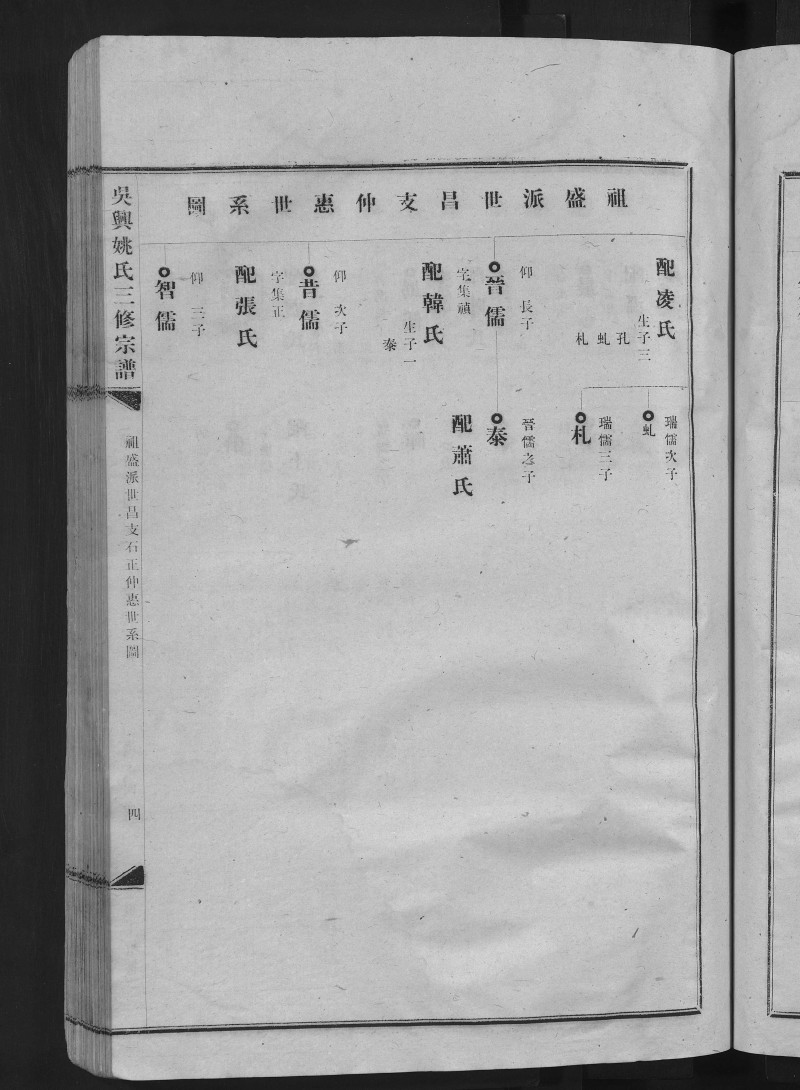 祖盛派世昌支仲惠世系圖
配凌氏
生子三
孔
虬
札
瑞儒次子
虬
瑞儒三子
札
仰長子
晉儒
字集禎
配韓氏
生子一
泰
晉儒之子
泰
配蕭氏
仰次子
昔儒
字集正
配張氏
仰三子
智儒
吳興姚氏三修宗譜
祖盛派世昌支石正仲惠世系圖
四